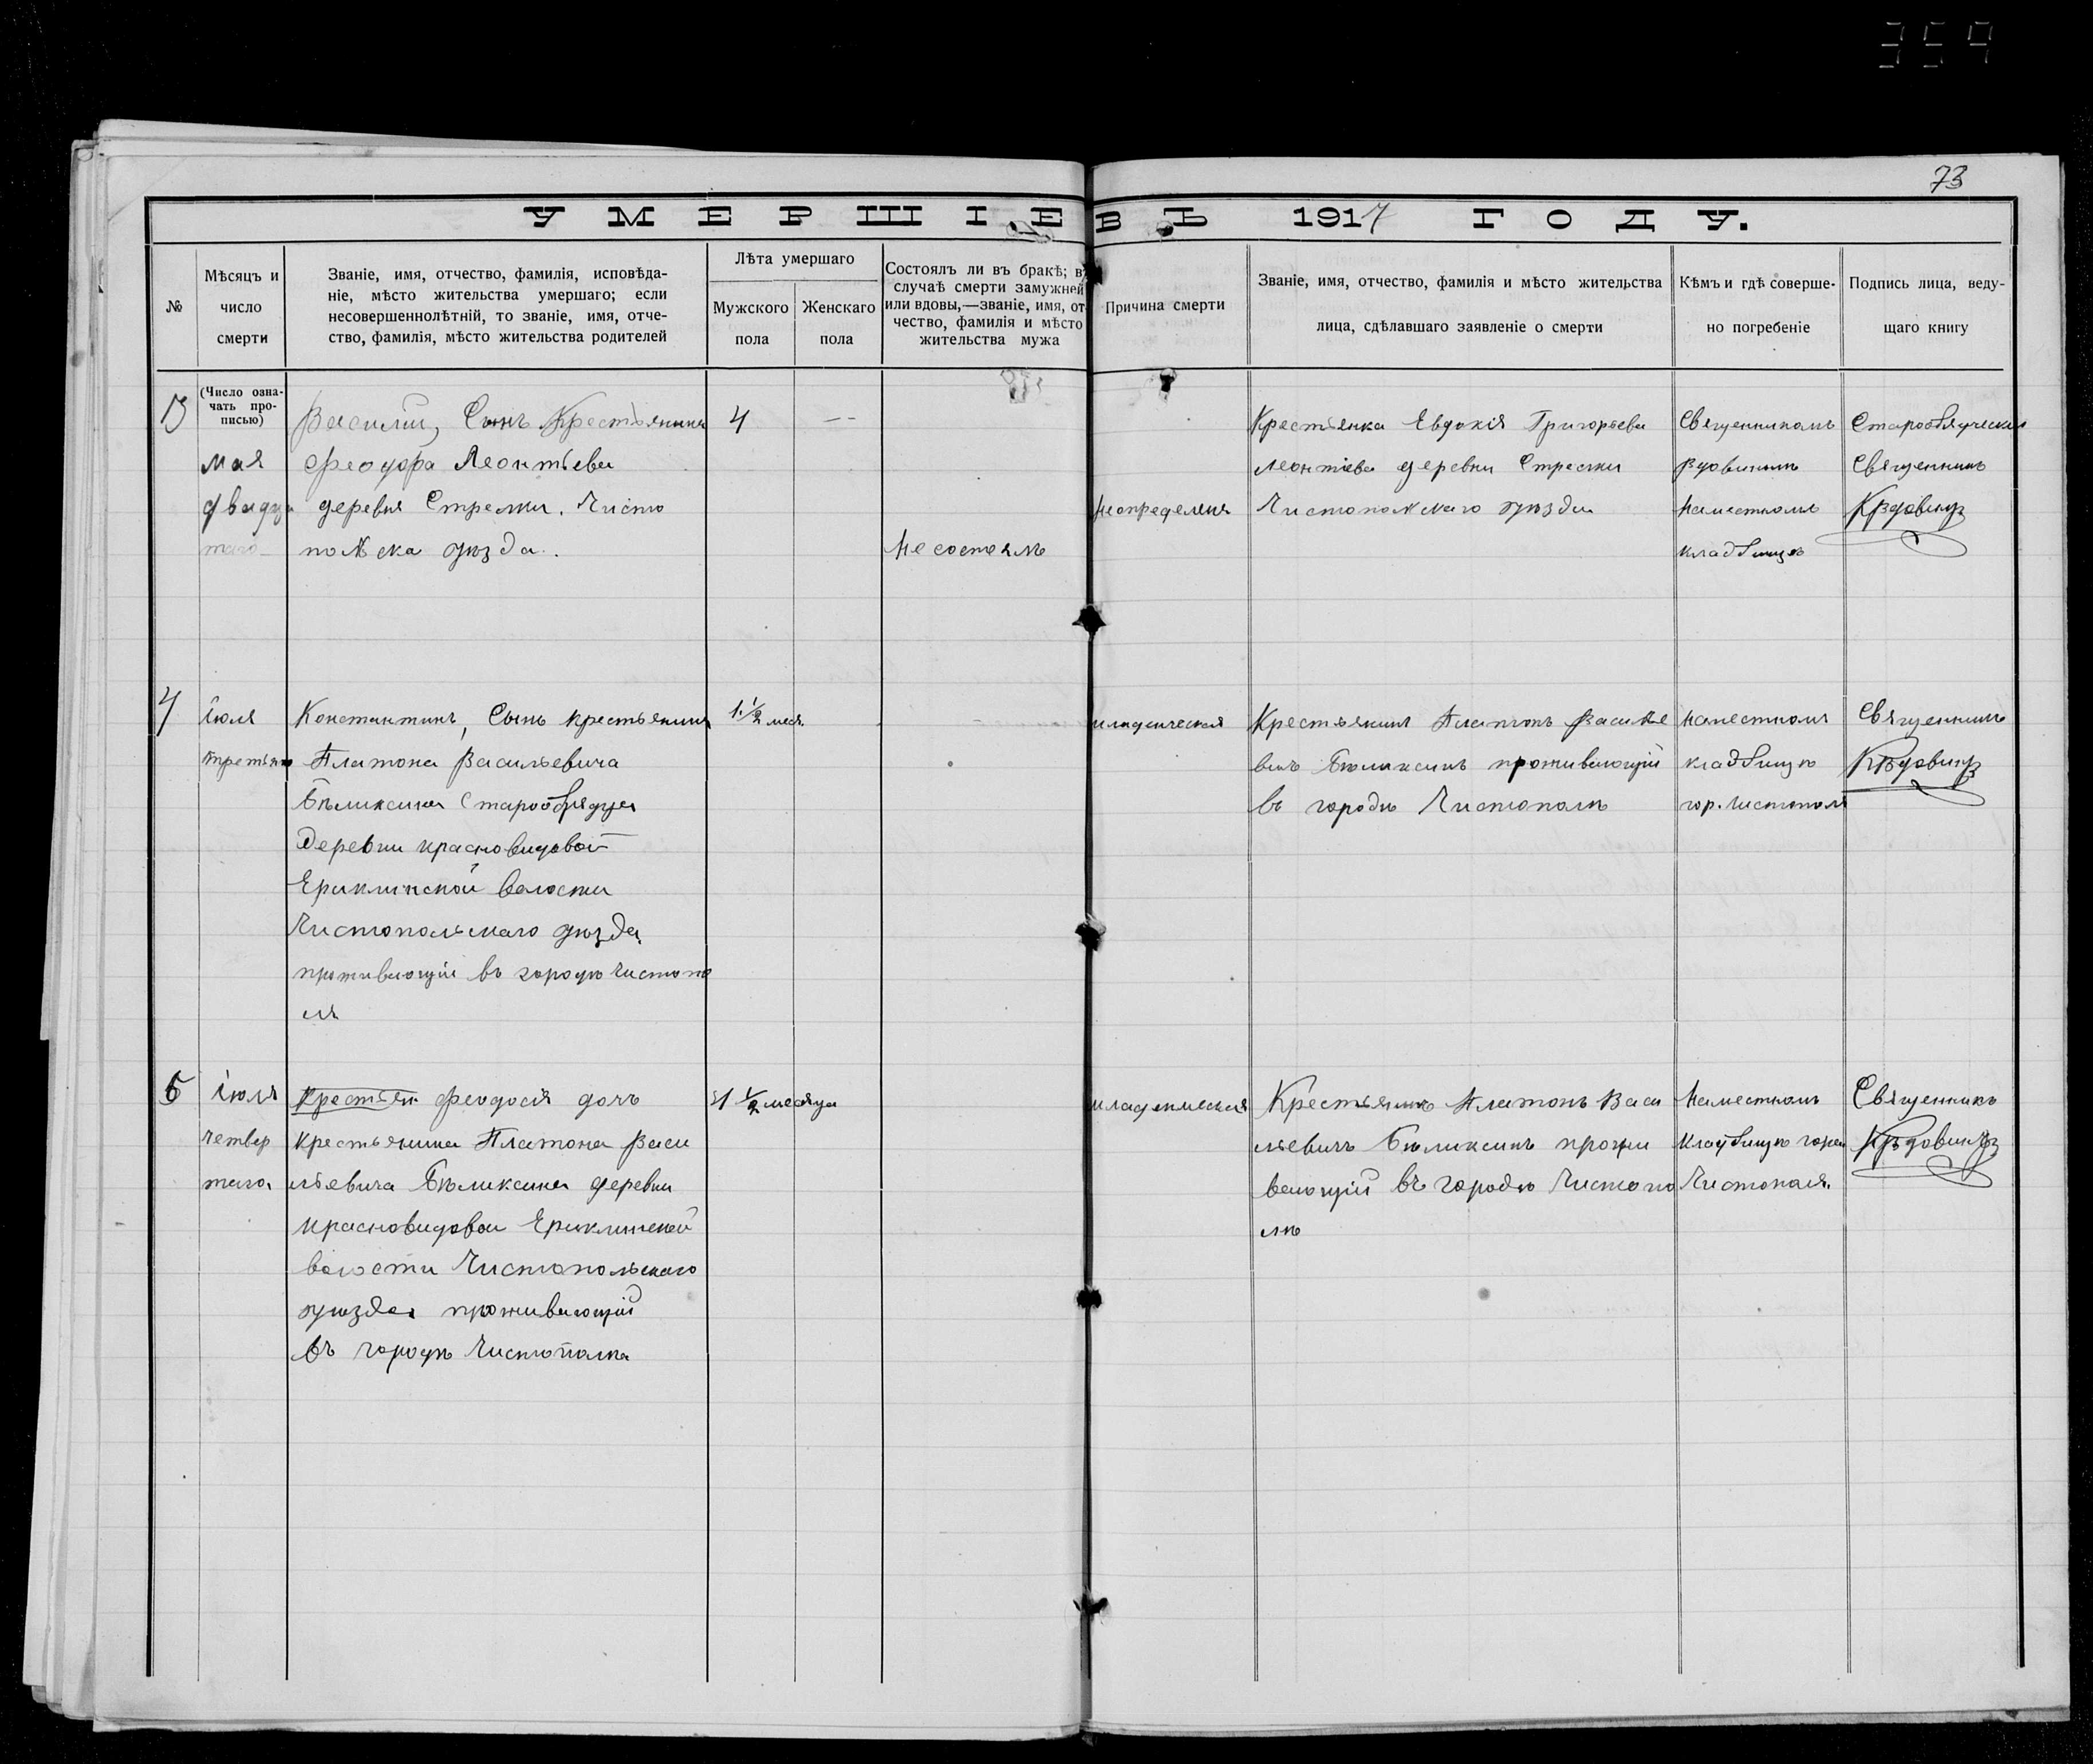 359
73
УМЕРШІЕ ВЪ 1917 ГОДУ.
№
Мѣсяцъ и
число
смерти
Званіе, имя, отчество, фамилія, исповѣда-
ніе, мѣсто жительства умершаго; если
несовершеннолѣтній, то званіе, имя, отче-
ство, фамилія, мѣсто жительства родителей
Лѣта умершаго
Мужского
пола
Женскаго
пола
Состоялъ ли въ бракѣ; въ
случаѣ смерти замужней
или вдовы,—званіе, имя, от-
чество, фамилія и мѣсто
жительства мужа
Причина смерти
Званіе, имя, отчество, фамилія и мѣсто жительства
лица, сдѣлавшаго заявленіе о смерти
Кѣмъ и гдѣ соверше-
но погребеніе
Подпись лица, веду-
щаго книгу
(Число озна-
чать про-
писью)
3
мая
двадца
таго
Василій, Сынъ Крестьянина
Феодора Леонтьева
деревня Стрелки. Чисто
польска уѣзда.
4
Не состоялъ
Неопределена
Крестьянка Евдокія Григорьева
Леонтіева деревни Стрелки
Чистопольскаго уѣзда
Священникомъ
Вдовинымъ
На местномъ
кладбищѣ
Старообрядчески
Священникъ
4
іюля
третьяго
Константинъ, Сынъ крестьянина
Платона Васильевича
Бѣликсина Старообрядца
Деревни Красновидовой
Ериклинской волости
Чистопольскаго уѣзда
проживающій въ городѣ Чистопо
лѣ
1 1/2 меся.
младенческая
Крестьянинъ Платонъ Василье
вичъ Бѣликсинъ проживающій
въ городѣ Чистополѣ
На местномъ
кладбищѣ
гор. Чистополя
Священникъ
5
іюля
четвер
таго
Крестьян Феодосія дочь
крестьянина Платона Васи
льевича Бѣликсина деревни
Красновидовой Ериклинской
волости Чистопольскаго
уѣзда проживающій
въ городѣ Чистополѣ
1 1/2 месяца
младенческая
Крестьянинъ Платонъ Васи
льевичъ Бѣликсинъ прожи
вающій въ городѣ Чистопо
лѣ
На местномъ
Кладбищѣ горо
Чистополя.
Священникъ